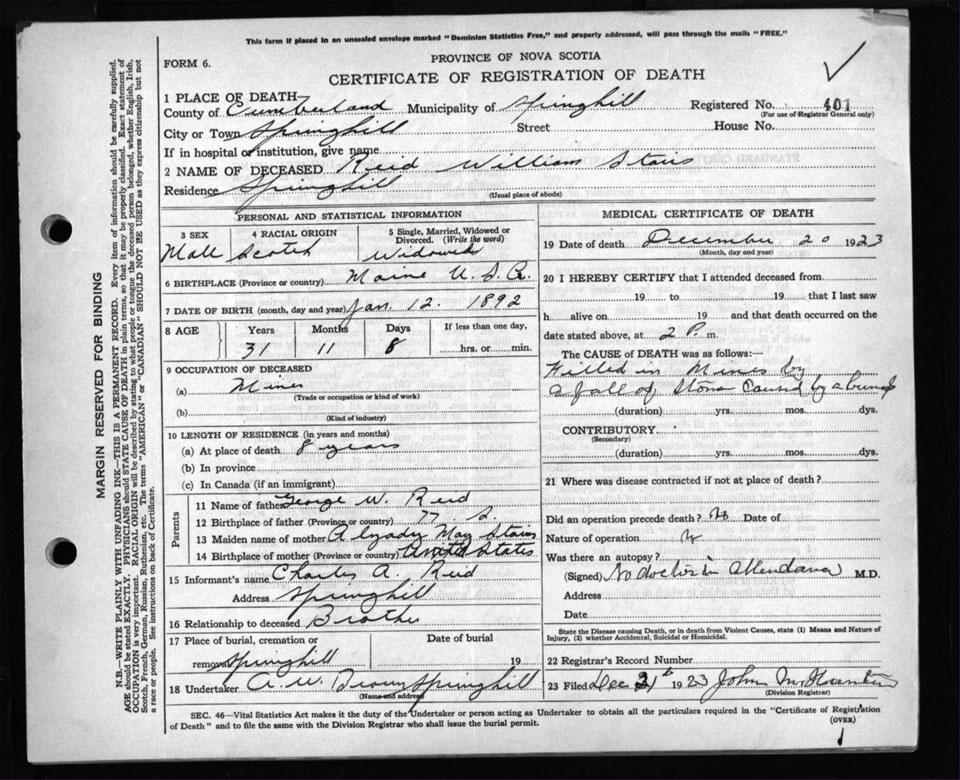 This form if placed in an unsealed envelope marked "Dominion Statistics Free," and property addressed, will pass through the mails "FREE."
FORM 6.
PROVINCE OF NOVA SCOTIA
CERTIFICATE OF REGISTRATION OF DEATH
1 PLACE OF DEATH
County of Cumberland Municipality of Springhill Registered No. 401
(For use of Registrar General only)
City or Town Springhill Street House No.
If in hospital or institution, give name
2 NAME OF DECEASED Reid William Stairs
Residence Springhill
(Usual place of abode)
PERSONAL AND STATISTICAL INFORMATION
3 SEX 4 RACIAL ORIGIN 5 Single, Married, Widowed or Divorced. (Write the word)
Male Scotch Widowed
6 BIRTHPLACE (Province or country) Maine U.S.A.
7 DATE OF BIRTH (month, day and year) Jan. 12. 1892
8 AGE Years Months Days If less than one day,
31 11 8 hrs. or min.
9 OCCUPATION OF DECEASED
(a) Miner
(Trade or occupation or kind of work)
(b)
(Kind of industry)
10 LENGTH OF RESIDENCE (in years and months)
(a) At place of death 8 years
(b) In province
(c) In Canada (if an immigrant)
Parents
11 Name of father George W. Reid
12 Birthplace of father (Province or country) N S
13 Maiden name of mother May Stairs
14 Birthplace of mother (Province or country) United States
15 Informant's name Charles A. Reid
Address Springhill
16 Relationship to deceased Brother
17 Place of burial, cremation or removal Springhill Date of burial 19
18 Undertaker A. W. Brown Springhill
(Name and address)
MEDICAL CERTIFICATE OF DEATH
19 Date of death December 20 1923
(Month, day and year)
20 I HEREBY CERTIFY that I attended deceased from
19 to 19 that I last saw
h alive on 19 and that death occurred on the
date stated above, at 2 P. m.
The CAUSE of DEATH was as follows:—
Killed in Mines by
a fall of Stone Caused by a bump
(duration) yrs. mos. dys.
CONTRIBUTORY
(Secondary)
(duration) yrs. mos. dys.
21 Where was disease contracted if not at place of death?
Did an operation precede death? No Date of
Nature of operation
Was there an autopsy?
(Signed) No doctor in attendance M.D.
Address
Date
State the Disease causing Death, or in death from Violent Causes, state (1) Means and Nature of
Injury, (2) whether Accidental, Suicidal or Homicidal.
22 Registrar's Record Number
23 Filed Dec 21 1923 John
(Division Registrar)
SEC. 46—Vital Statistics Act makes it the duty of the Undertaker or person acting as Undertaker to obtain all the particulars required in the "Certificate of Registration
of Death" and to file the same with the Division Registrar who shall issue the burial permit.
(OVER)
MARGIN RESERVED FOR BINDING
N.B.—WRITE PLAINLY WITH UNFADING INK—THIS IS A PERMANENT RECORD. Every item of information should be carefully supplied.
AGE should be stated EXACTLY. PHYSICIANS should STATE CAUSE OF DEATH in plain terms, so that it may be properly classified. Exact statement of
OCCUPATION is very important. RACIAL ORIGIN will be described by stating to what people or tongue the deceased person belonged, whether English, Irish,
Scotch, French, German, Russian, Ruthenian, etc. The terms "AMERICAN" or "CANADIAN" SHOULD NOT BE USED as they express citizenship but not
a race or people. See instructions on back of Certificate.